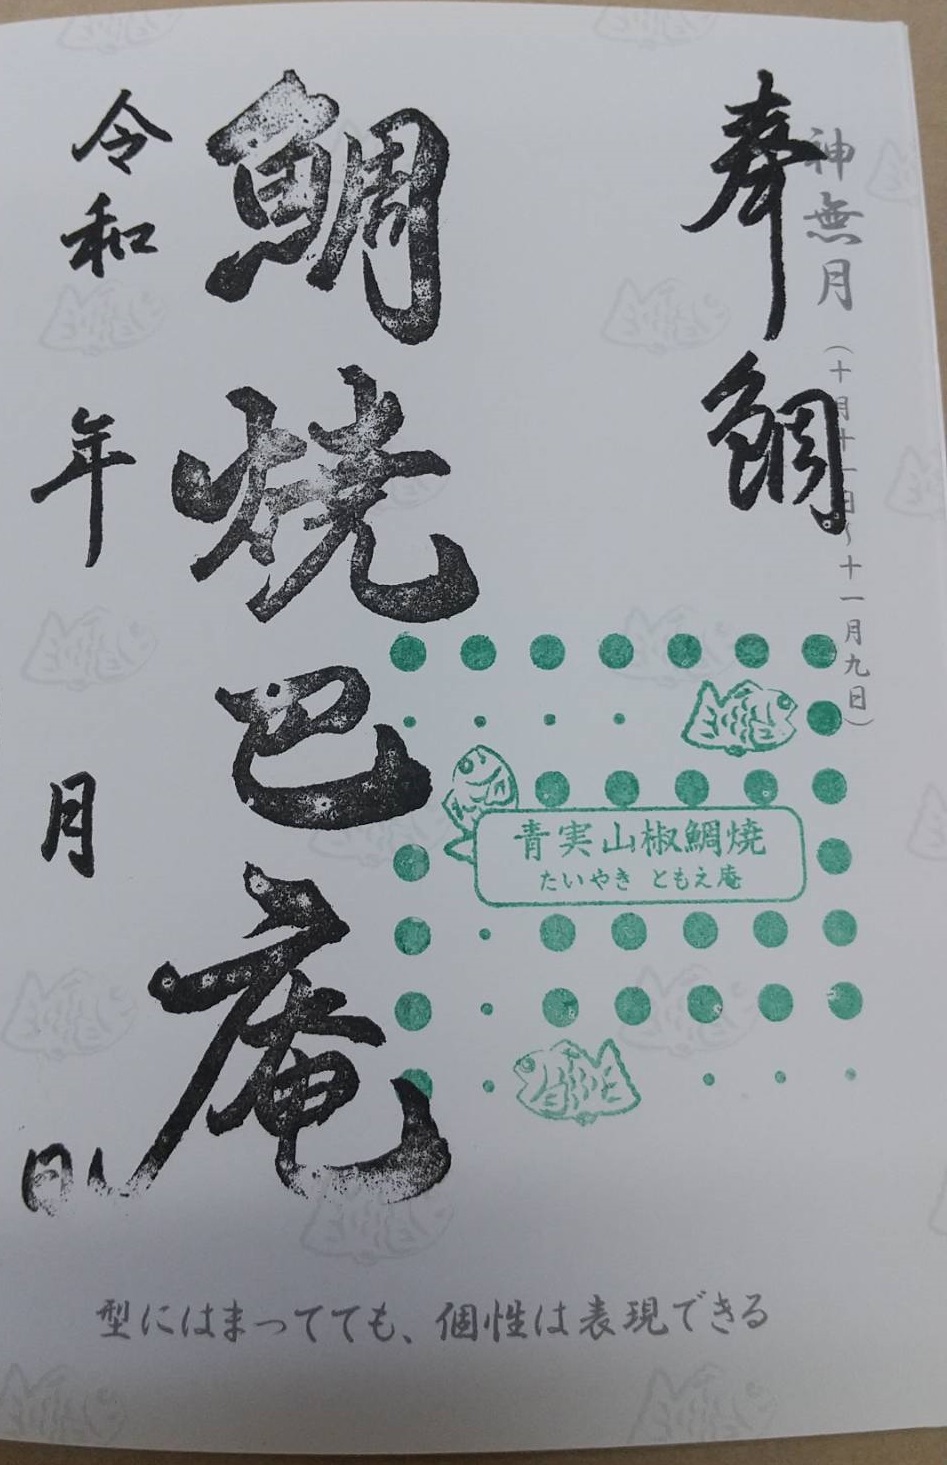 神無月
(十月十一日～十一月九日)
奉鯛
鯛焼巴庵
令和 年 月 日
青実山椒鯛焼
たいやき ともえ庵
型にはまってても、個性は表現できる